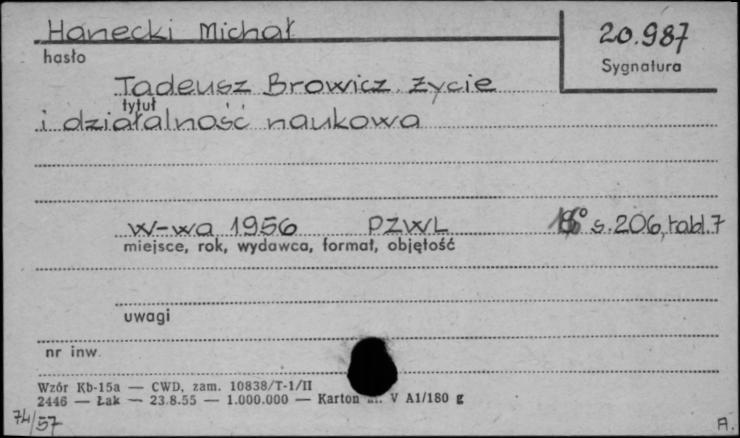 Hanecki Michał
20.987
hasło
Sygnatura
Tadeusz Browicz. Życie
tytuł
i działalność naukowa
W-wa 1956 PZWL s. 206, tabl. 7
miejsce, rok, wydawca, format, objętość
uwagi
nr inw.
Wzór Kb-15a — CWD, zam. 10838/T-1/II
2446 — Łak — 23.8.55 — 1.000.000 — Karton V A1/180 g
74/57
A.